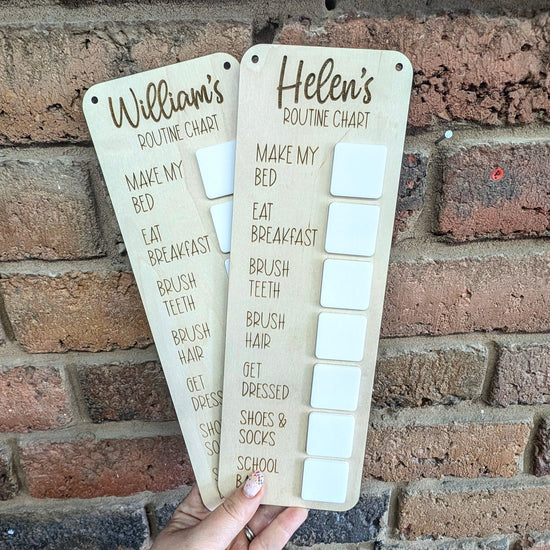 William's
ROUTINE CHART
MAKE MY
BED
EAT
BREAKFAST
BRUSH
TEETH
BRUSH
HAIR
GET
DRESSED
Helen's
ROUTINE CHART
MAKE MY
BED
EAT
BREAKFAST
BRUSH
TEETH
BRUSH
HAIR
GET
DRESSED
SHOES &
SOCKS
SCHOOL